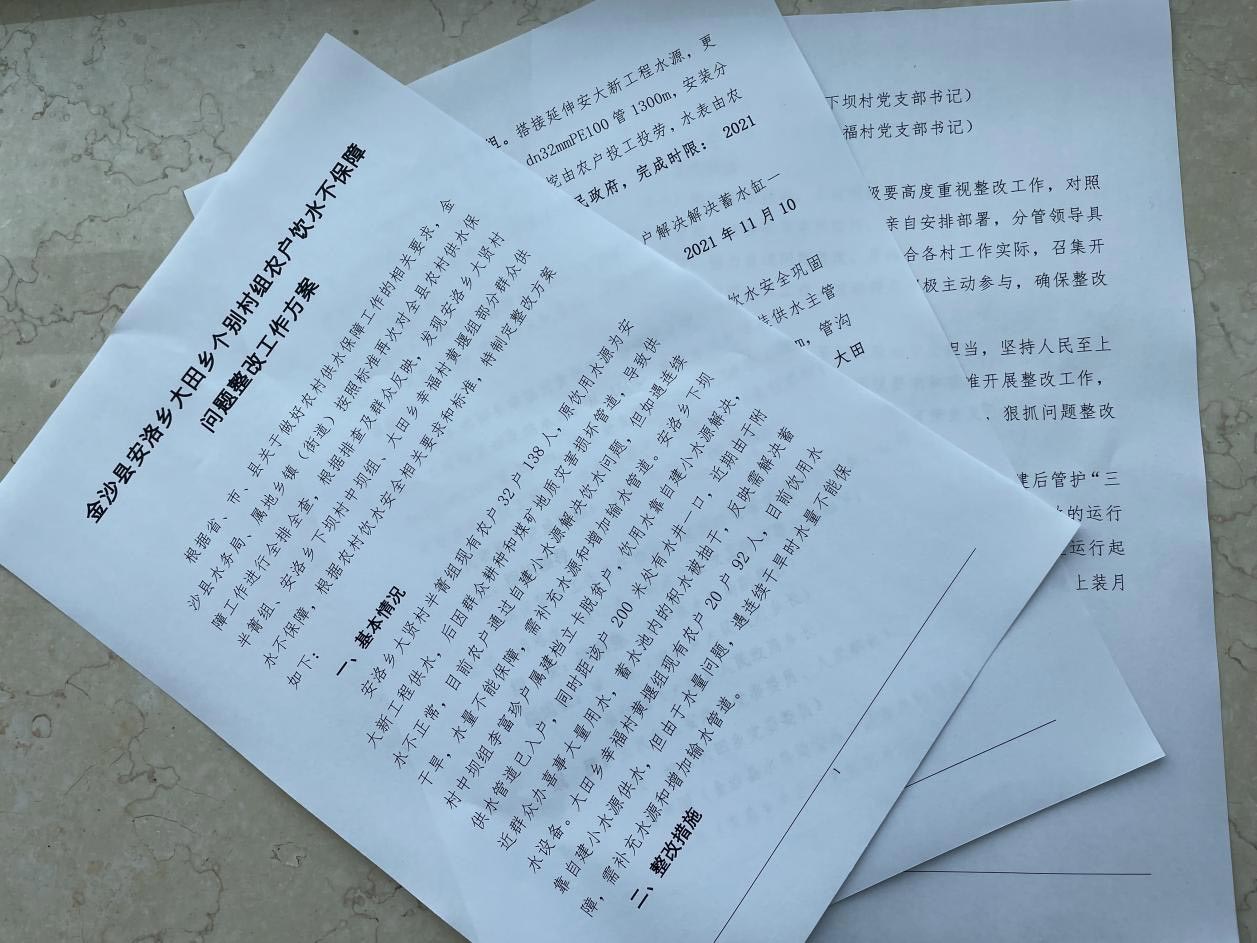 金沙县安洛乡大田乡个别村组农户饮水不保障
问题整改工作方案
根据省、市、县关于做好农村供水保障工作的相关要求，金
沙县水务局、属地乡镇（街道）按照标准再次对全县农村供水保
障工作进行全排全查，根据排查及群众反映，发现安洛乡大贤村
半箐组、安洛乡下坝村中坝组、大田乡幸福村黄堰组部分群众供
水不保障，根据农村饮水安全相关要求和标准，特制定整改方案
如下：
一、基本情况
安洛乡大贤村半箐组现有农户 32 户 138 人，原饮用水源为安
大新工程供水，后因群众耕种和煤矿地质灾害损坏管道，导致供
水不正常，目前农户通过自建小水源解决饮水问题，但如遇连续
干旱，水量不能保障，需补充水源和增加输水管道。安洛乡下坝
村中坝组李富珍户属建档立卡脱贫户，饮用水靠自建小水源解决，
供水管道已入户，同时距该户 200 米处有水井一口，近期由于附
近群众办喜事大量用水，蓄水池内的积水被抽干，反映需解决蓄
水设备。大田乡幸福村黄堰组现有农户 20 户 92 人，目前饮用水
靠自建小水源供水，但由于水量问题，遇连续干旱时水量不能保
障，需补充水源和增加输水管道。
二、整改措施
1
。搭接延伸安大新工程水源，更
dn32mmPE100 管 1300m，安装分
挖由农户投工投劳，水表由农
民政府，完成时限：2021
户解决解决蓄水缸一
2021 年 11 月 10
饮水安全巩固
供水主管
，管沟
大田
下坝村党支部书记）
福村党支部书记）
级要高度重视整改工作，对照
亲自安排部署，分管领导具
合各村工作实际，召集开
极主动参与，确保整改
担当，坚持人民至上
准开展整改工作，
、狠抓问题整改
建后管护“三
的运行
运行起
上装月